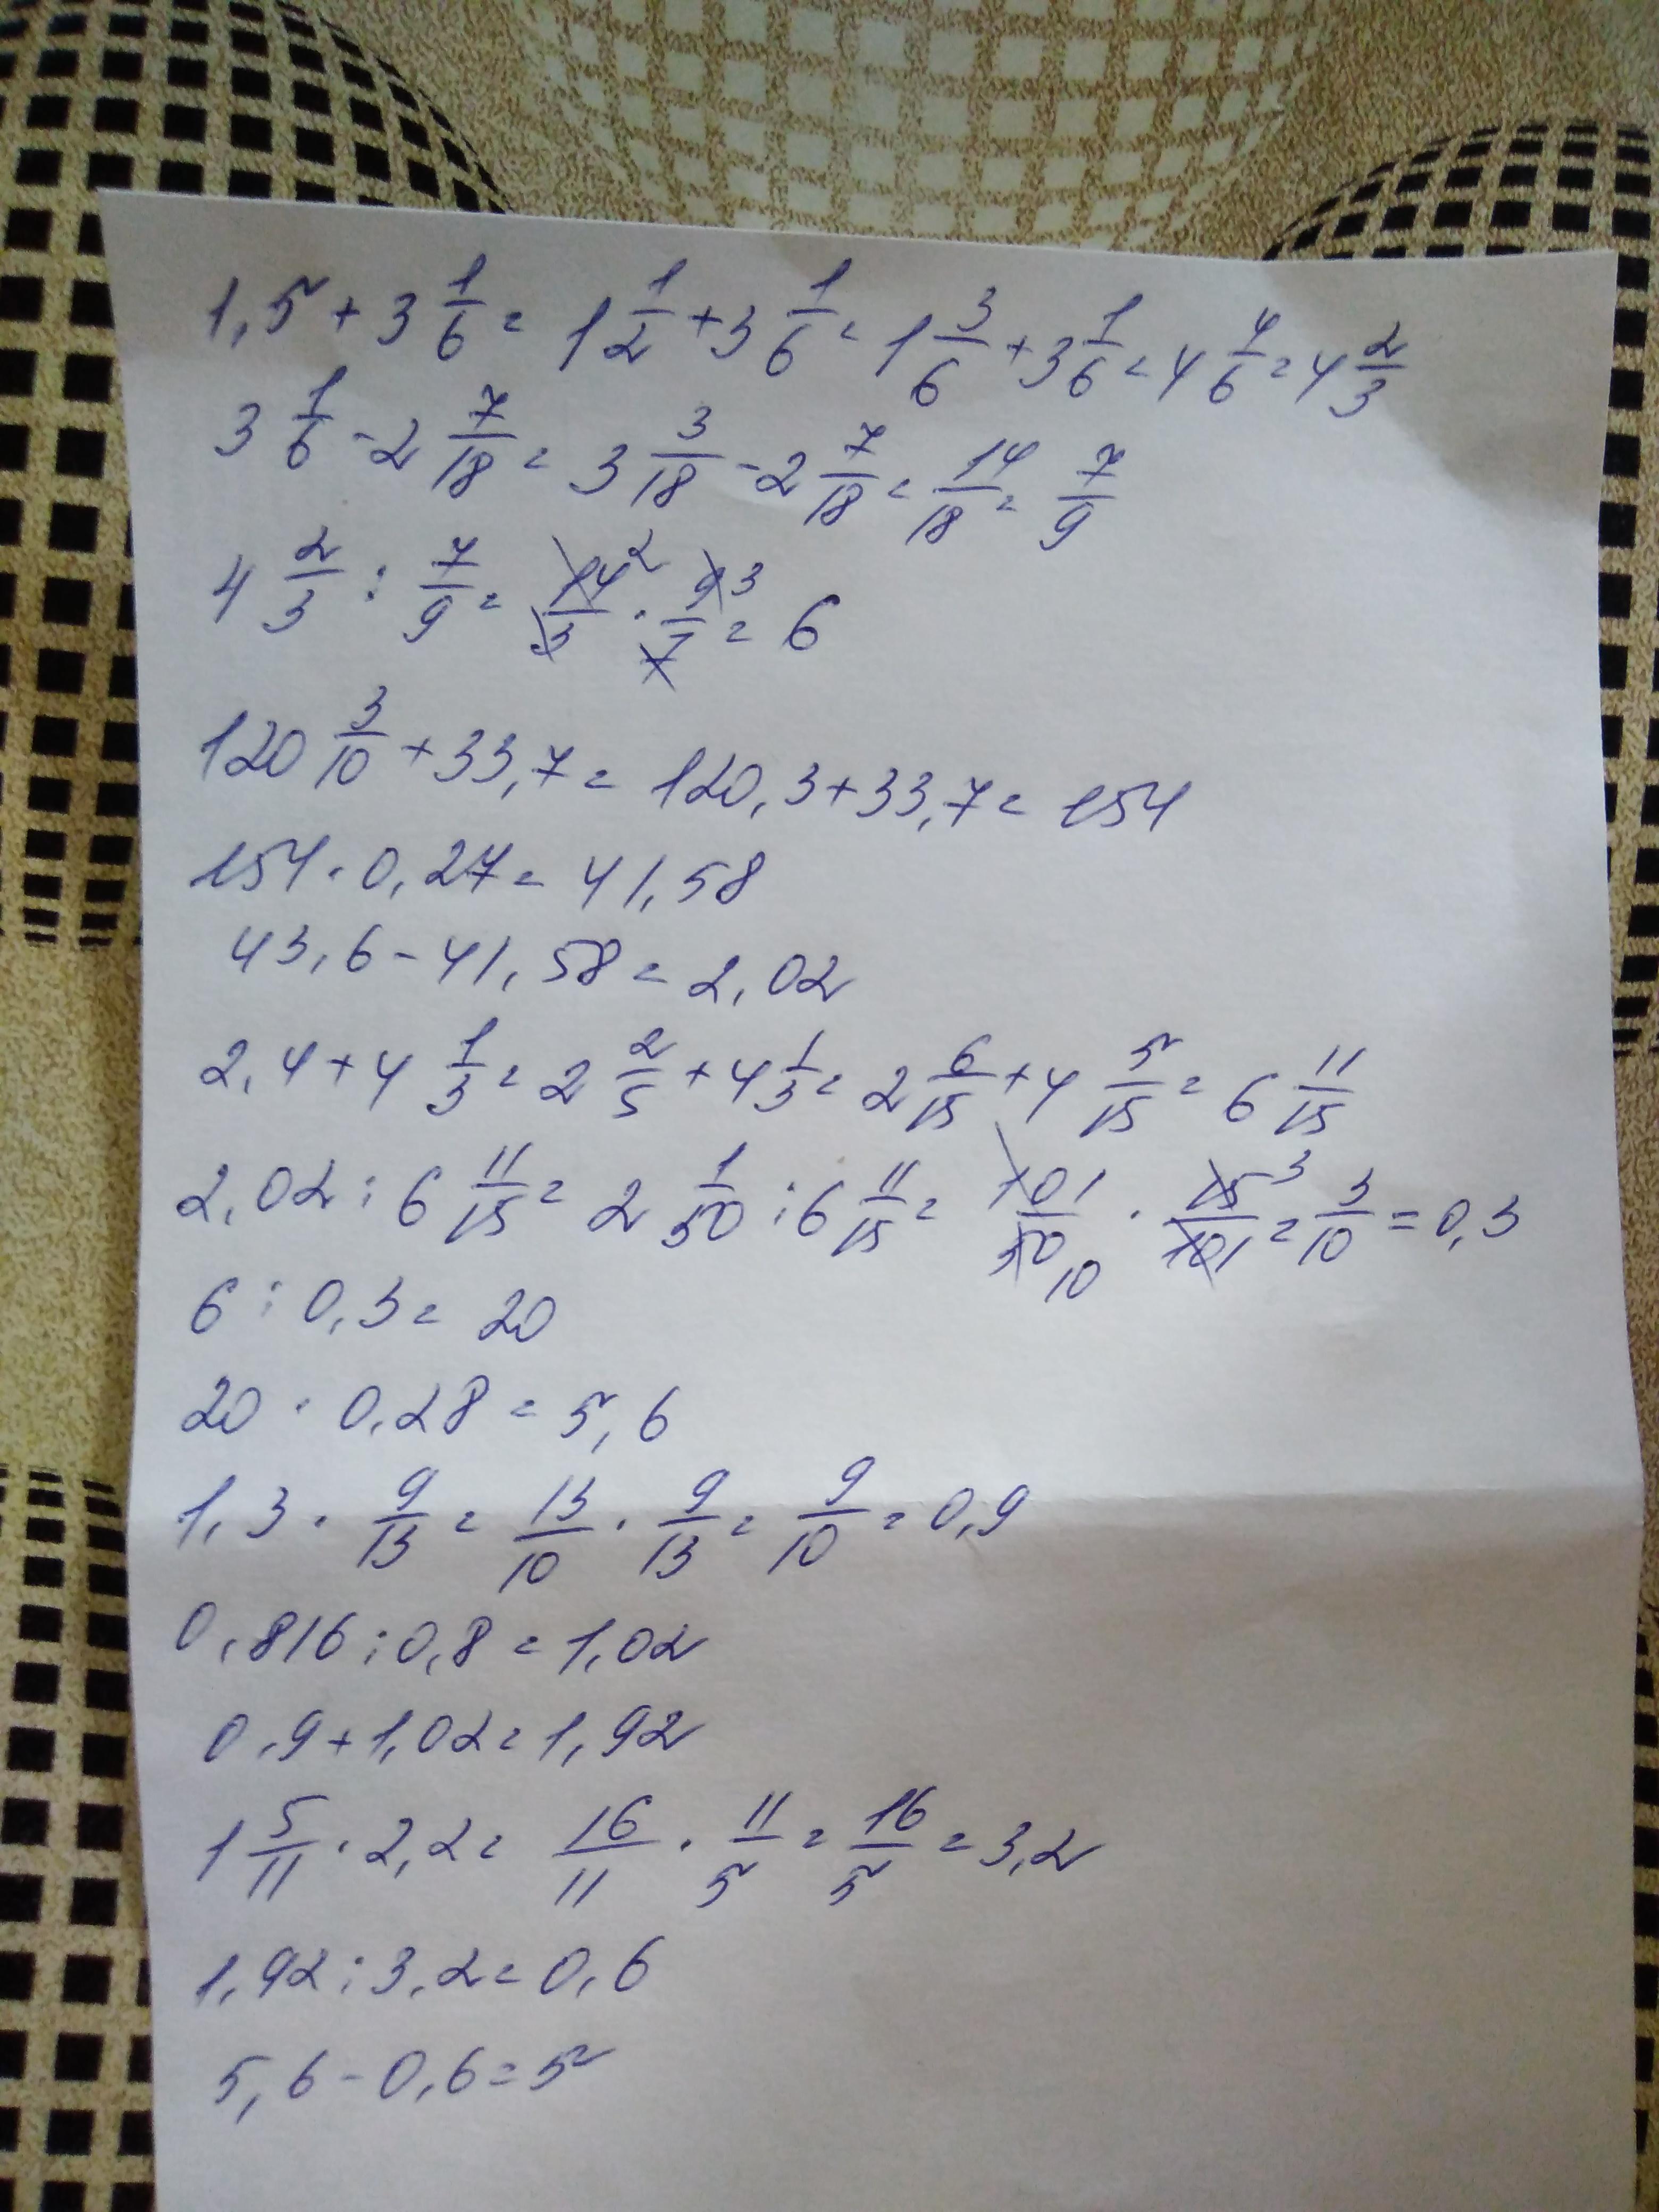 1,5 + 3 1/6 = 1 1/2 + 3 1/6 = 1 3/6 + 3 1/6 = 4 4/6 = 4 2/3
3 1/6 - 2 7/18 = 3 3/18 - 2 7/18 = 14/18 = 7/9
4 2/3 : 7/9 = 14 2/3 · 9 3/7 = 6
120 3/10 + 33,7 = 120,3 + 33,7 = 154
154 · 0,27 = 41,58
43,6 - 41,58 = 2,02
2,4 + 4 1/3 = 2 2/5 + 4 1/3 = 2 6/15 + 4 5/15 = 6 11/15
2,02 : 6 11/15 = 2 1/50 : 6 11/15 = 101/50 10 · 15 3/101 = 3/10 = 0,3
6 : 0,3 = 20
20 · 0,28 = 5,6
1,3 · 9/13 = 13/10 · 9/13 = 9/10 = 0,9
0,816 : 0,8 = 1,02
0,9 + 1,02 = 1,92
1 5/11 · 2,2 = 16/11 · 11/5 = 16/5 = 3,2
1,92 : 3,2 = 0,6
5,6 - 0,6 = 5